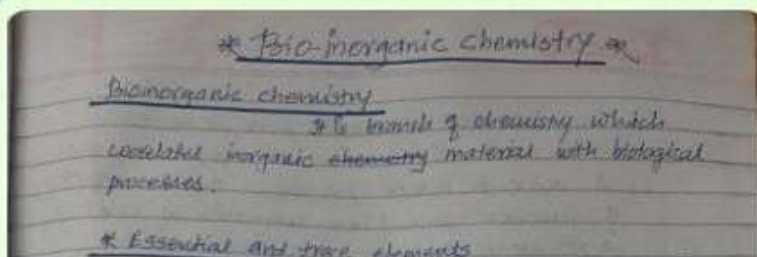 * Bio-inorganic chemistry *
Bioinorganic chemistry
It is branch of chemistry which
correlates inorganic chemistry material with biological
processes.
* Essential and trace elements